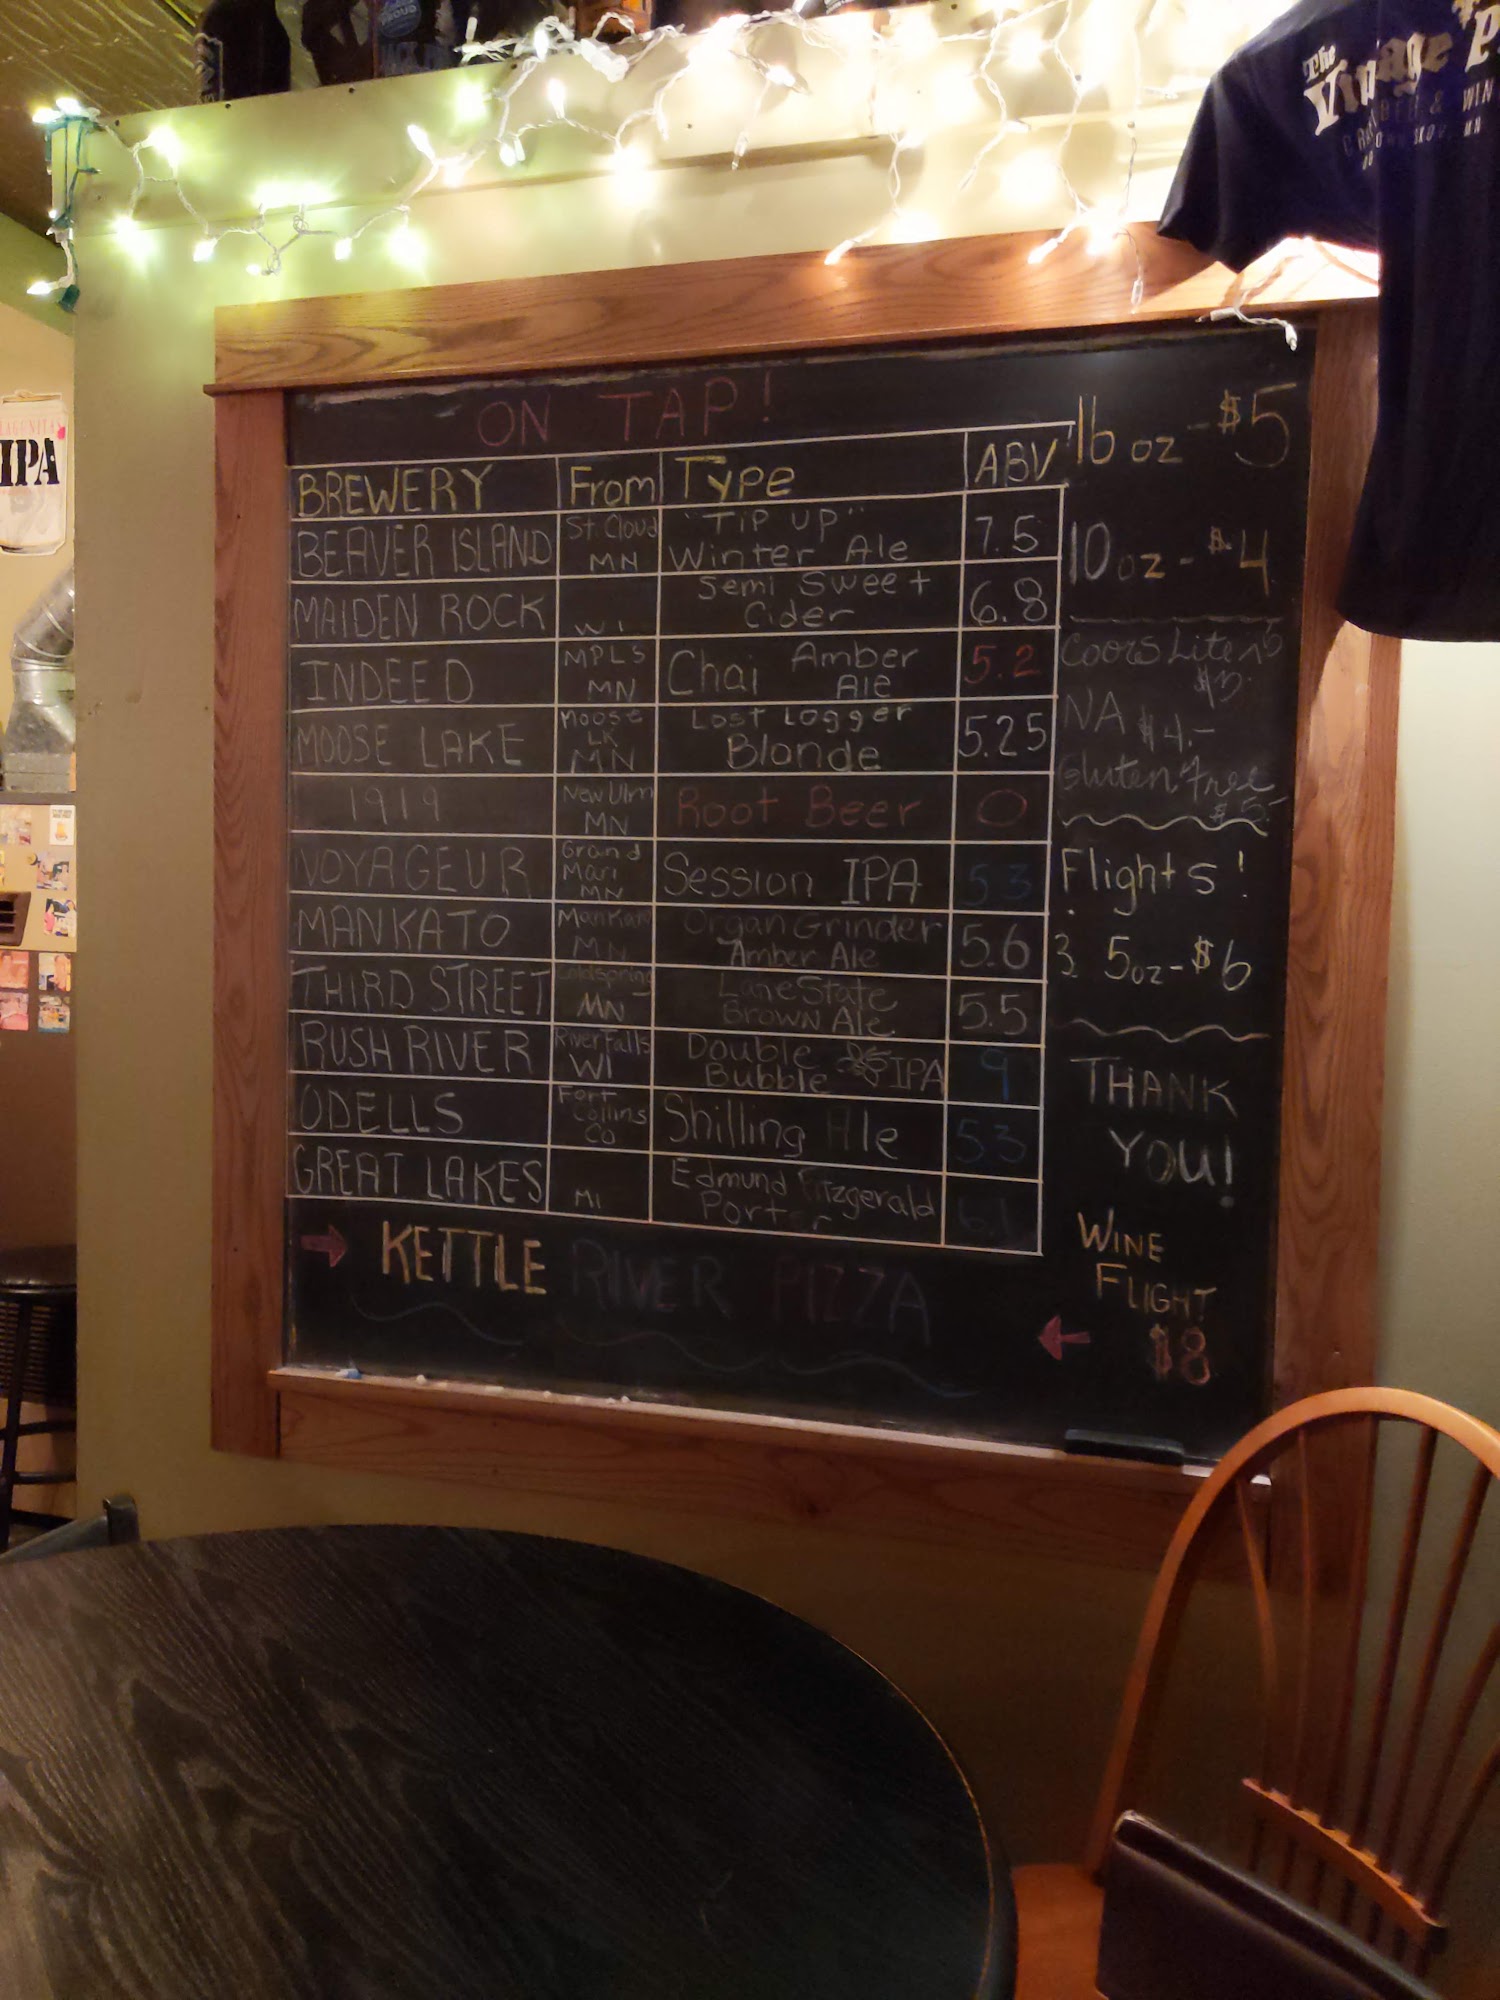 The Vintage
BEER & WIN
IPA
ON TAP!
16 oz - $5
10 oz - $4
BREWERY From Type ABV
BEAVER ISLAND St. Cloud MN "Tip up" Winter Ale 7.5
MAIDEN ROCK WI Semi Sweet Cider 6.8
INDEED MPLS MN Chai Amber Ale 5.2
MOOSE LAKE Moose LK MN Lost Logger Blonde 5.25
1919 New Ulm MN Root Beer 0
VOYAGEUR Grand Mari MN Session IPA 5.3
MANKATO Mankato MN Organ Grinder Amber Ale 5.6
THIRD STREET Coldspring MN Lane State Brown Ale 5.5
RUSH RIVER River Falls WI Double Bubble IPA 9
ODELLS Fort Collins CO Shilling Ale 5.3
GREAT LAKES MI Edmund Fitzgerald Porter 6.1
Coors Lite
$3.
NA $4.-
Gluten Free
$5.-
Flights!
3. 5oz - $6
THANK
YOU!
WINE
FLIGHT
$8
KETTLE RIVER PIZZA